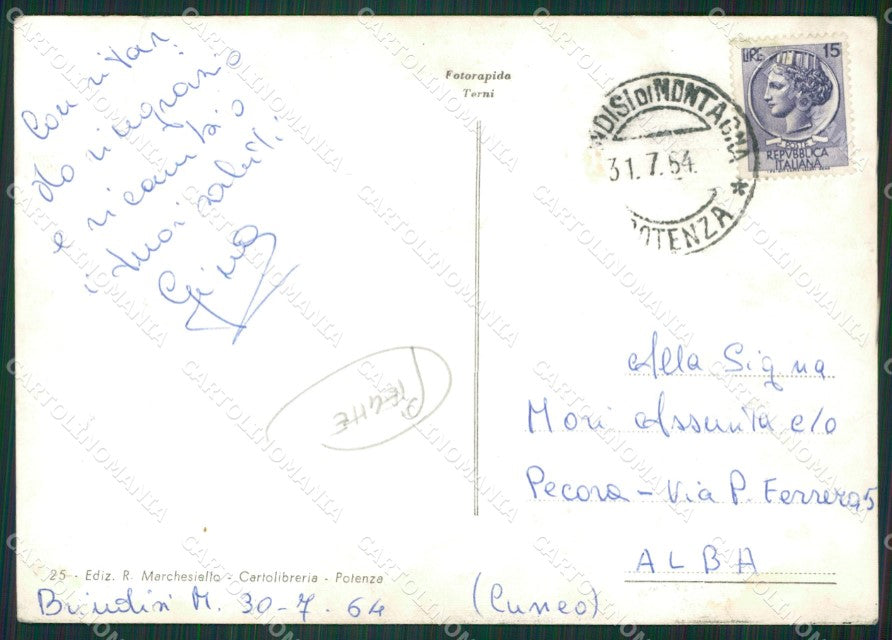 Con ritar:
do ringrazio
e ricambio
i tuoi saluti
Gina
Fotorapida
Terni
NDISI DI MONTAGNA
31.7.64
POTENZA
LIRE 15
POSTE
REPVBBLICA
ITALIANA
Alla Sig.na
Mori Assunta c/o
Pecora - Via P. Ferrero 5
ALBA
(Cuneo)
25 - Ediz. R. Marchesiello - Cartolibreria - Potenza
Brindisi M. 30-7-64
CARTOLINOMANIA